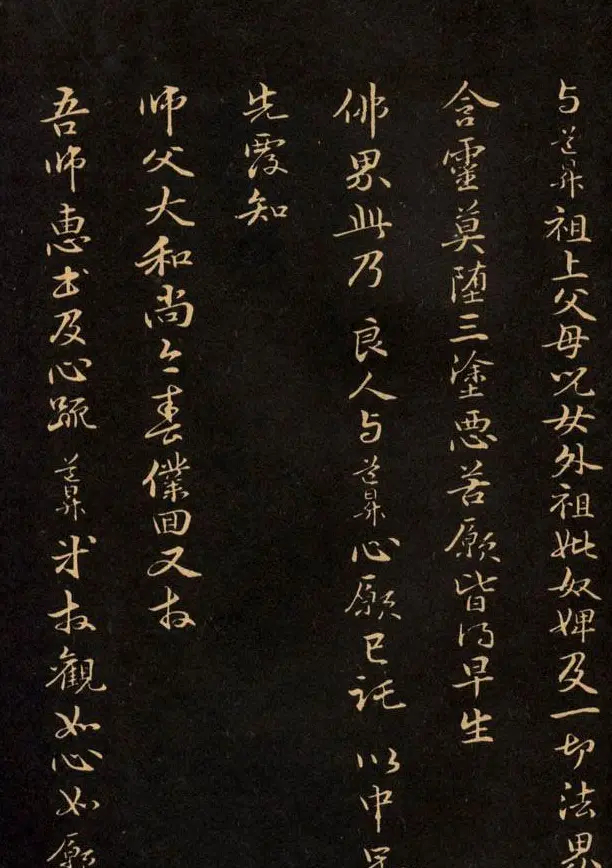 与道昇祖上父母兒女外祖妣奴婢及一切法界
含靈莫墮三塗惡苦願皆得早生
佛界此乃 良人与道昇心願已託 以中
先覆知
师父大和尚今春僕回又拜
吾师惠書及心疏 道昇 拜觀如心如願